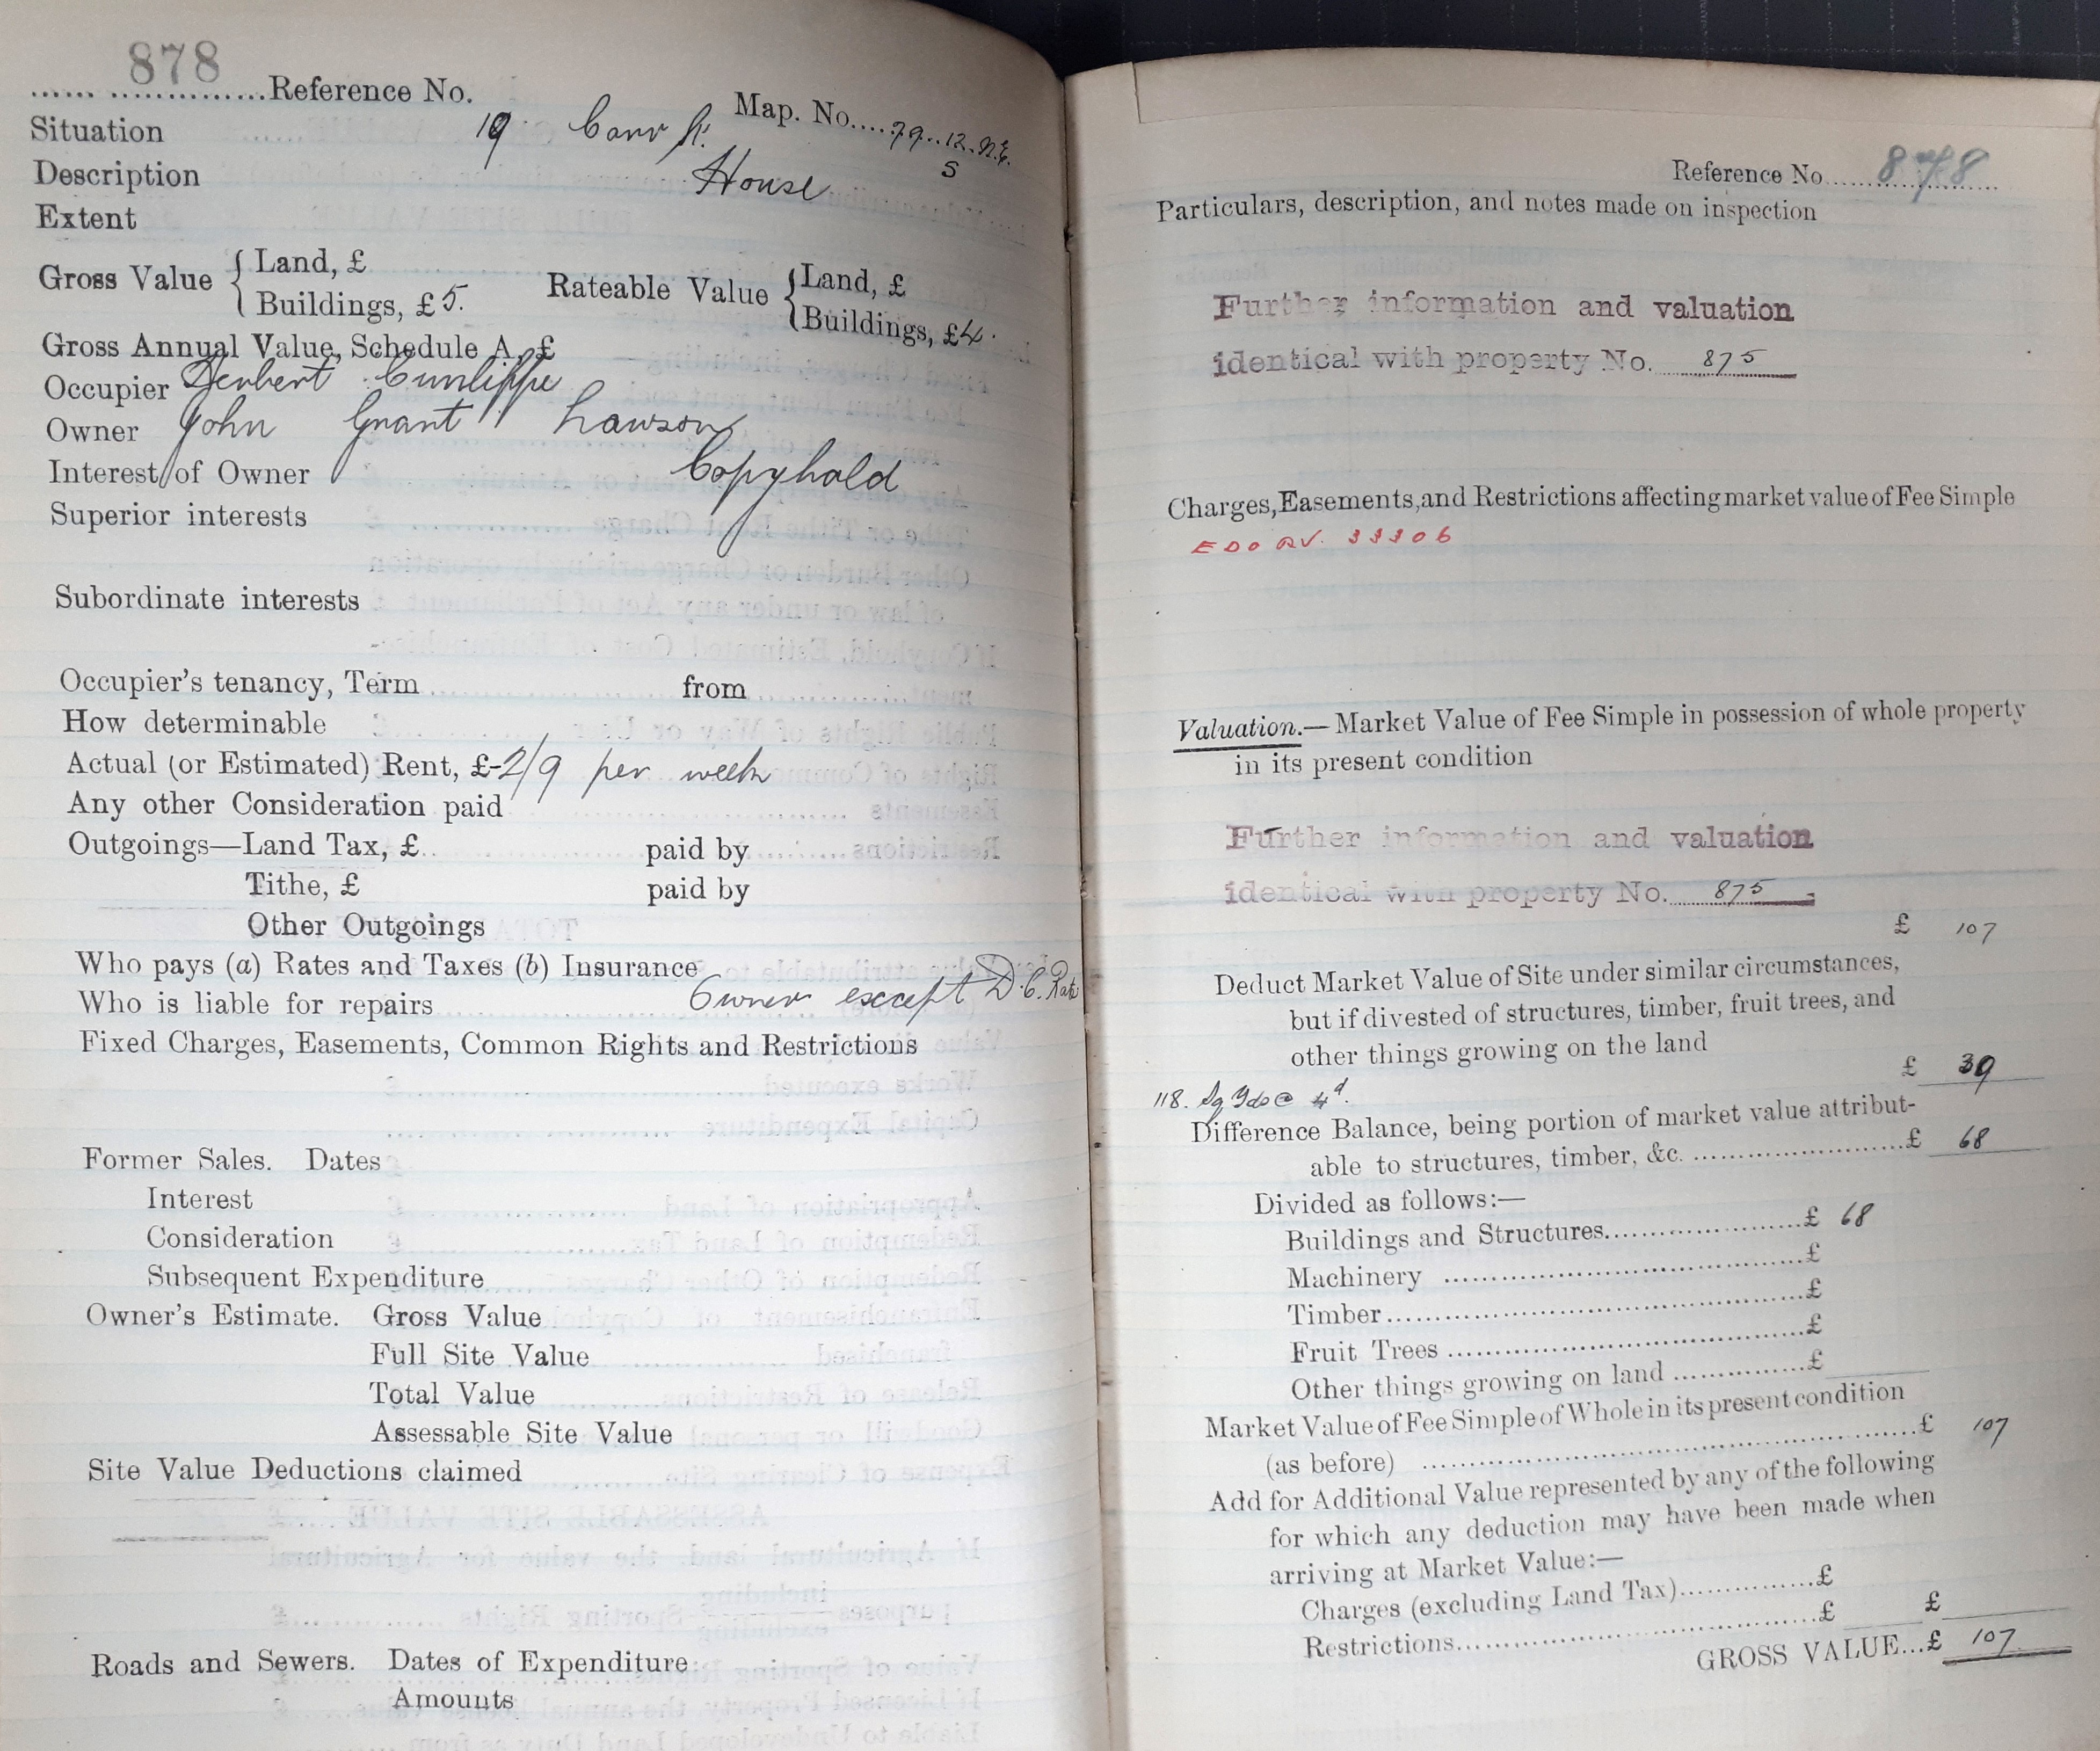 878
...... ..............Reference No.
Map. No....79..12.N.E.
S
Situation 19 Carr St.
Description House
Extent
Gross Value { Land, £
Buildings, £5.
Rateable Value { Land, £
Buildings, £4.
Gross Annual Value, Schedule A, £
Occupier Herbert Cunliffe
Owner John Grant Lawson
Interest of Owner Copyhold
Superior interests
Subordinate interests
Occupier's tenancy, Term from
How determinable
Actual (or Estimated) Rent, £-2/9 per week
Any other Consideration paid
Outgoings—Land Tax, £ paid by
Tithe, £ paid by
Other Outgoings
Who pays (a) Rates and Taxes (b) Insurance
Who is liable for repairs Owner except D.C. Rate
Fixed Charges, Easements, Common Rights and Restrictions
Former Sales. Dates
Interest
Consideration
Subsequent Expenditure
Owner's Estimate. Gross Value
Full Site Value
Total Value
Assessable Site Value
Site Value Deductions claimed
Roads and Sewers. Dates of Expenditure
Amounts
Reference No. 878
Particulars, description, and notes made on inspection
Further information and valuation
identical with property No. 875
Charges, Easements, and Restrictions affecting market value of Fee Simple
EDO RV. 33306
Valuation.— Market Value of Fee Simple in possession of whole property
in its present condition
Further information and valuation
identical with property No. 875
£ 107
Deduct Market Value of Site under similar circumstances,
but if divested of structures, timber, fruit trees, and
other things growing on the land
£ 39
118. Sq Yds @ 4d.
Difference Balance, being portion of market value attribut-
able to structures, timber, &c. £ 68
Divided as follows:—
Buildings and Structures £ 68
Machinery £
Timber £
Fruit Trees £
Other things growing on land £
Market Value of Fee Simple of Whole in its present condition
(as before) £ 107
Add for Additional Value represented by any of the following
for which any deduction may have been made when
arriving at Market Value:—
Charges (excluding Land Tax) £
Restrictions £ £
GROSS VALUE...£ 107